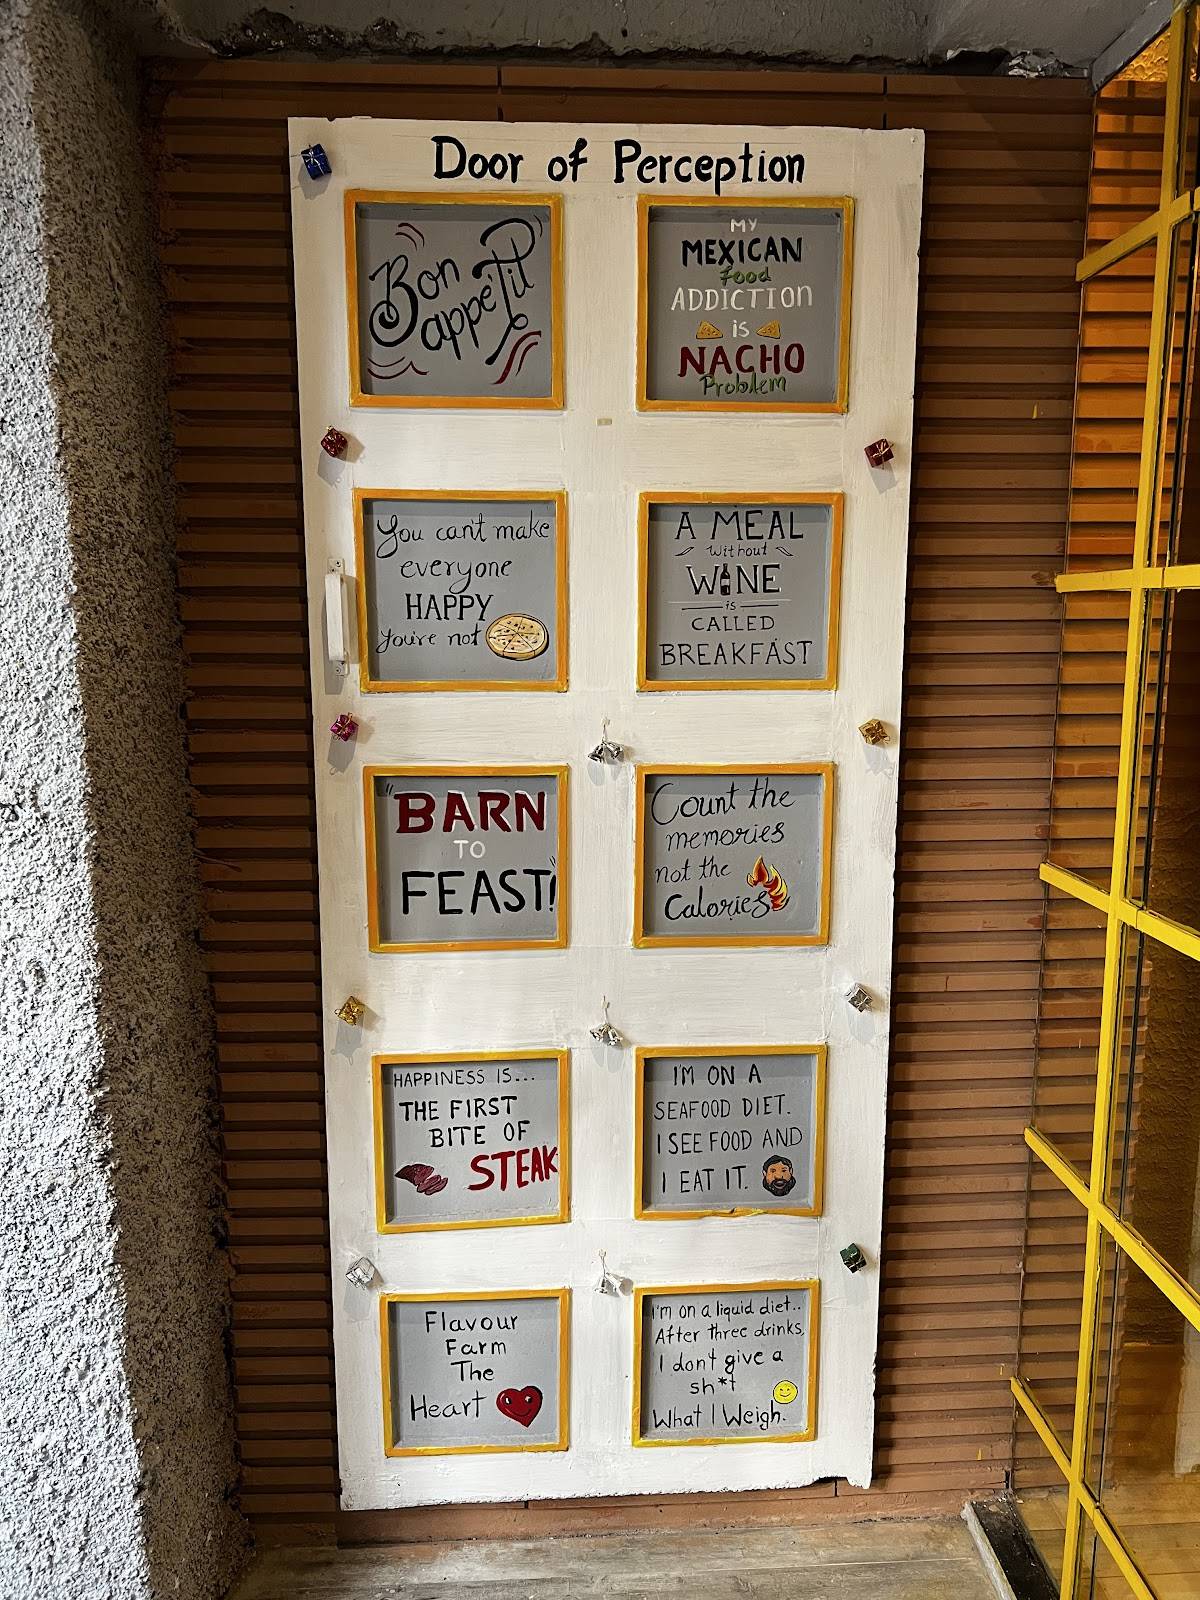 Door of Perception
Bon
appetit
MY
MEXICAN
food
ADDICTION
is
NACHO
Problem
You can't make
everyone
HAPPY
You're not
A MEAL
without
WINE
is
CALLED
BREAKFAST
"BARN
TO
FEAST!"
Count the
memories
not the
Calories
HAPPINESS IS...
THE FIRST
BITE OF
STEAK
I'M ON A
SEAFOOD DIET.
I SEE FOOD AND
I EAT IT.
Flavour
Farm
The
Heart
I'm on a liquid diet..
After three drinks,
I don't give a
sh*t
What I Weigh.